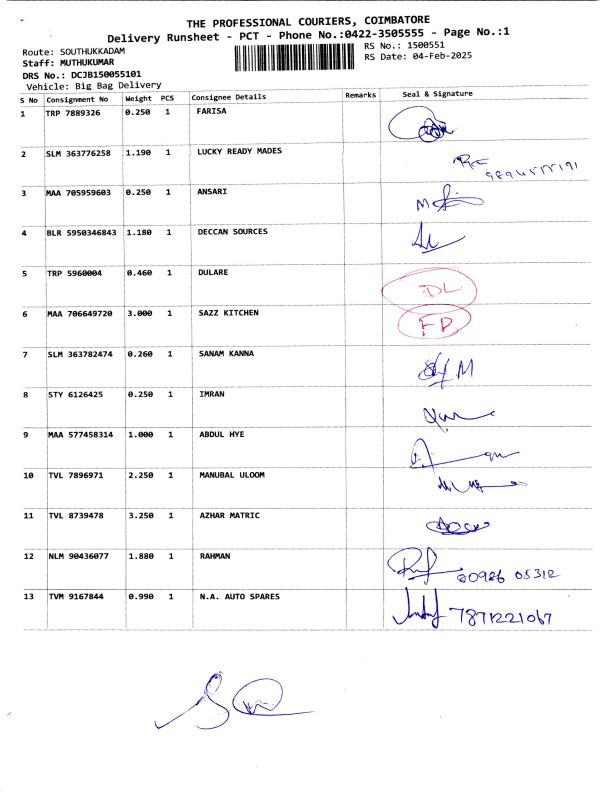 THE PROFESSIONAL COURIERS, COIMBATORE
Delivery Runsheet - PCT - Phone No.:0422-3505555 - Page No.:1
Route: SOUTHUKKADAM RS No.: 1500551
Staff: MUTHUKUMAR RS Date: 04-Feb-2025
DRS No.: DCJB150055101
Vehicle: Big Bag Delivery
S No Consignment No Weight PCS Consignee Details Remarks Seal & Signature
1 TRP 7889326 0.250 1 FARISA
2 SLM 363776258 1.190 1 LUCKY READY MADES
3 MAA 705959603 0.250 1 ANSARI
4 BLR 5950346843 1.180 1 DECCAN SOURCES
5 TRP 5960004 0.460 1 DULARE DL
6 MAA 706649720 3.000 1 SAZZ KITCHEN FD
7 SLM 363782474 0.260 1 SANAM KANNA
8 STY 6126425 0.250 1 IMRAN
9 MAA 577458314 1.000 1 ABDUL HYE
10 TVL 7896971 2.250 1 MANUBAL ULOOM
11 TVL 8739478 3.250 1 AZHAR MATRIC
12 NLM 90436077 1.880 1 RAHMAN 80986 05312
13 TVM 9167844 0.990 1 N.A. AUTO SPARES 7871221067